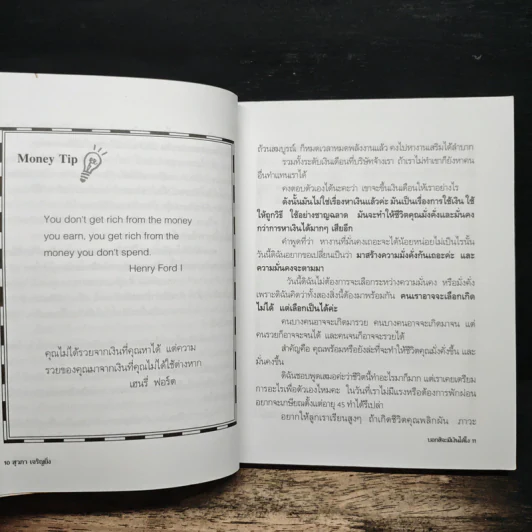 Money Tip
You don't get rich from the money
you earn, you get rich from the
money you don't spend.
Henry Ford I
คุณไม่ได้รวยจากเงินที่คุณหาได้ แต่ความ
รวยของคุณมาจากเงินที่คุณไม่ได้ใช้ต่างหาก
เฮนรี่ ฟอร์ด
10 สุวภา เจริญยิ่ง
ถ้วนสมบูรณ์ ก็หมดเวลาหมดพลังงานแล้ว คงไปหางานเสริมได้ลำบาก
รวมทั้งระดับเงินเดือนที่บริษัทจ้างเรา ถ้าเราไม่ทำเขาก็ยังหาคน
อื่นทำแทนเราได้
คงตอบตัวเองได้นะคะว่า เขาจะขึ้นเงินเดือนให้เราอย่างไร
ดังนั้นมันไม่ใช่เรื่องหาเงินแล้วค่ะ มันเป็นเรื่องการใช้เงิน ใช้
ให้ถูกวิธี ใช้อย่างชาญฉลาด มันจะทำให้ชีวิตคุณมั่งคั่งและมั่นคง
กว่าการหาเงินได้มากๆ เสียอีก
คำพูดที่ว่า หางานที่มั่นคงเถอะจะได้น้อยหน่อยไม่เป็นไรนั้น
วันนี้ดิฉันอยากขอเปลี่ยนเป็นว่า มาสร้างความมั่งคั่งกันเถอะค่ะ และ
ความมั่นคงจะตามมา
วันนี้ดิฉันไม่ต้องการจะเลือกระหว่างความมั่นคง หรือมั่งคั่ง
เพราะดิฉันคิดว่าทั้งสองสิ่งนี้ต้องมาพร้อมกัน คนเราอาจจะเลือกเกิด
ไม่ได้ แต่เลือกเป็นได้ค่ะ
คนบางคนอาจจะเกิดมารวย คนบางคนอาจจะเกิดมาจน แต่
คนรวยก็อาจจะจนได้ และคนจนก็อาจจะรวยได้
สำคัญคือ คุณพร้อมหรือยังล่ะที่จะทำให้ชีวิตคุณมั่งคั่งขึ้น และ
มั่นคงขึ้น
ดิฉันชอบพูดเสมอค่ะว่าชีวิตนี้ทำอะไรมาก็มาก แต่เราเคยเตรียม
การอะไรเพื่อตัวเองไหมคะ ในวันที่เราไม่มีแรงหรือต้องการพักผ่อน
อยากจะเกษียณตั้งแต่อายุ 45 ทำได้รึเปล่า
อยากให้ลูกเราเรียนสูงๆ ถ้าเกิดชีวิตคุณพลิกผัน ภาวะ
11